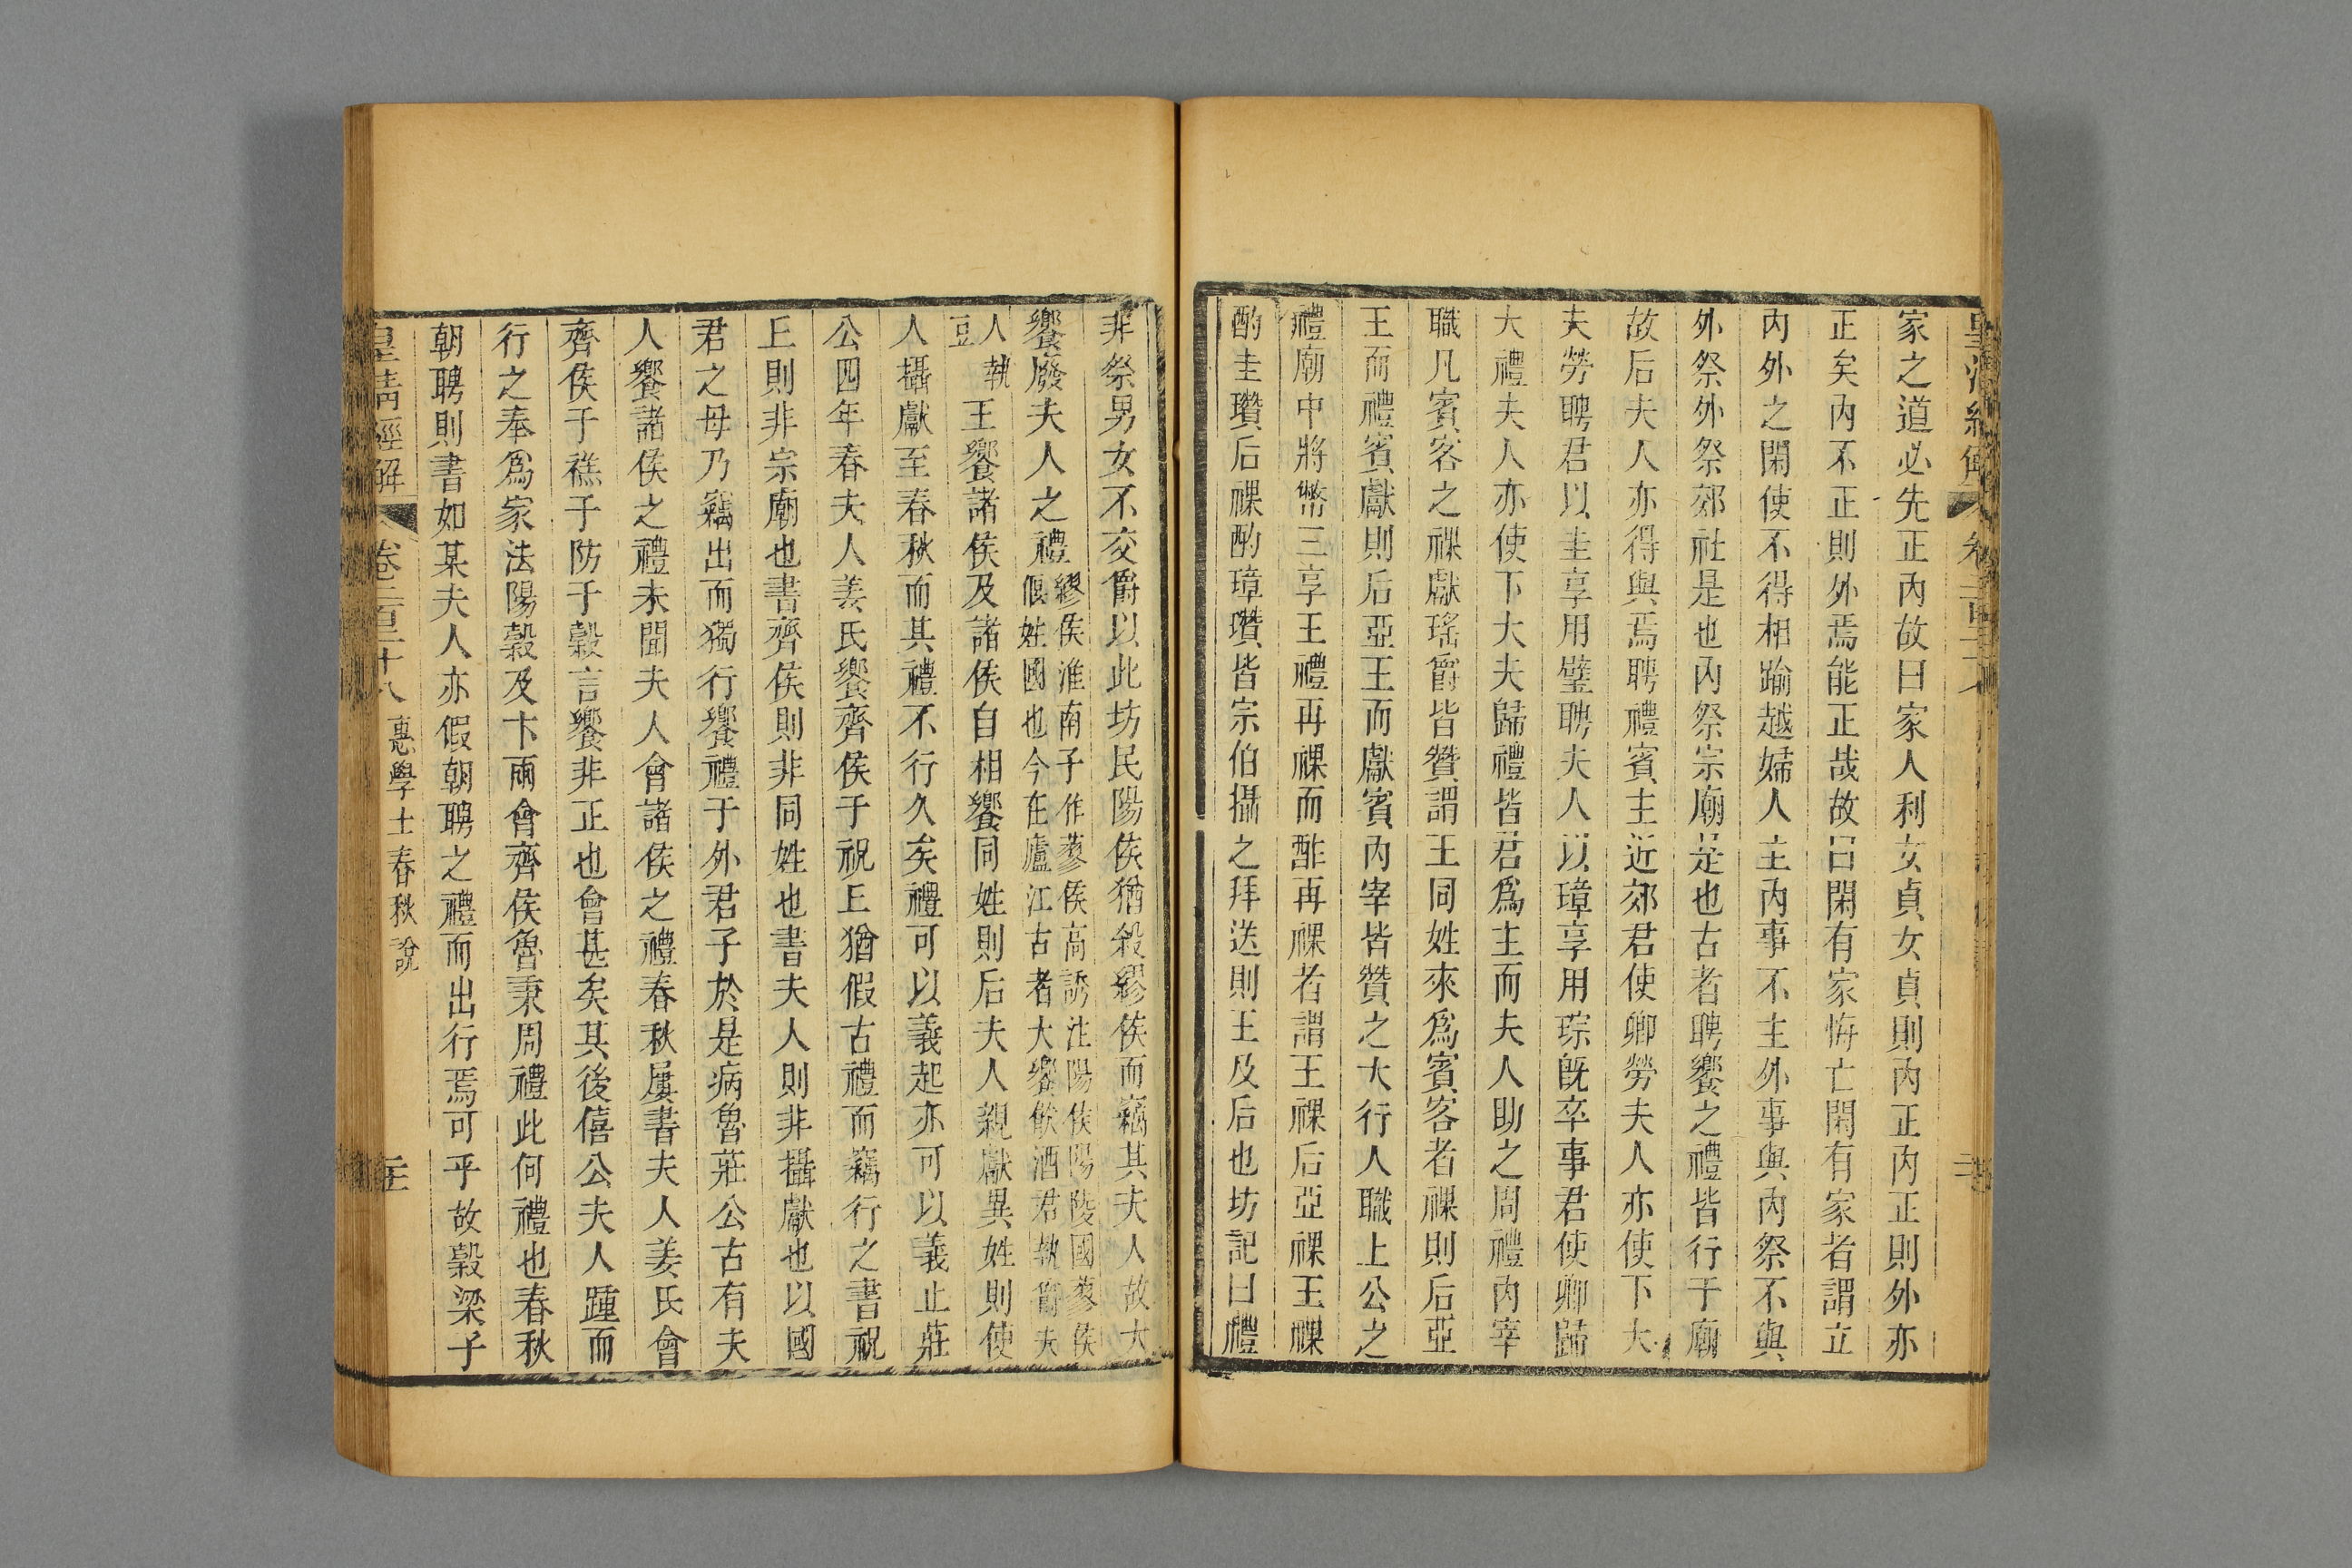 家之道必先正內故曰家人利女貞女貞則內正內正則外亦
正矣內不正則外焉能正哉故曰閑有家悔亡閑有家者謂立
內外之閑使不得相踰越婦人主內事不主外事與內祭不與
外祭外祭郊社是也內祭宗廟是也古者聘饗之禮皆行于廟
故后夫人亦得與焉聘禮賓主近郊君使卿勞夫人亦使下大
夫勞聘君以圭享用璧聘夫人以璋享用琮旣卒事君使卿歸
大禮夫人亦使下大夫歸禮皆君爲主而夫人助之周禮內宰
職凡賓客之祼獻瑤爵皆贊謂王同姓來爲賓客者祼則后亞
王而禮賓獻則后亞王而獻賓內宰皆贊之大行人職上公之
禮廟中將幣三享王禮再祼而酢再祼者謂王祼后亞祼王祼
酌圭瓚后祼酌璋瓚皆宗伯攝之拜送則王及后也坊記曰禮
非祭男女不交爵以此坊民陽侯猶殺繆侯而竊其夫人故大
饗廢夫人之禮繆侯淮南子作蓼侯高誘注陽侯陽陵國蓼侯
偃姓國也今在廬江古者大饗飲酒君執爵夫
人執
豆
王饗諸侯及諸侯自相饗同姓則后夫人親獻異姓則使
人攝獻至春秋而其禮不行久矣禮可以義起亦可以義止莊
公四年春夫人姜氏饗齊侯于祝丘猶假古禮而竊行之書祝
丘則非宗廟也書齊侯則非同姓也書夫人則非攝獻也以國
君之母乃竊出而獨行饗禮于外君子於是病魯莊公古有夫
人饗諸侯之禮未聞夫人會諸侯之禮春秋屢書夫人姜氏會
齊侯于禚于防于穀言饗非正也會甚矣其後僖公夫人踵而
行之奉爲家法陽穀及卞兩會齊侯魯秉周禮此何禮也春秋
朝聘則書如某夫人亦假朝聘之禮而出行焉可乎故穀梁子
皇清經解 卷二百二十八 惠學士春秋說